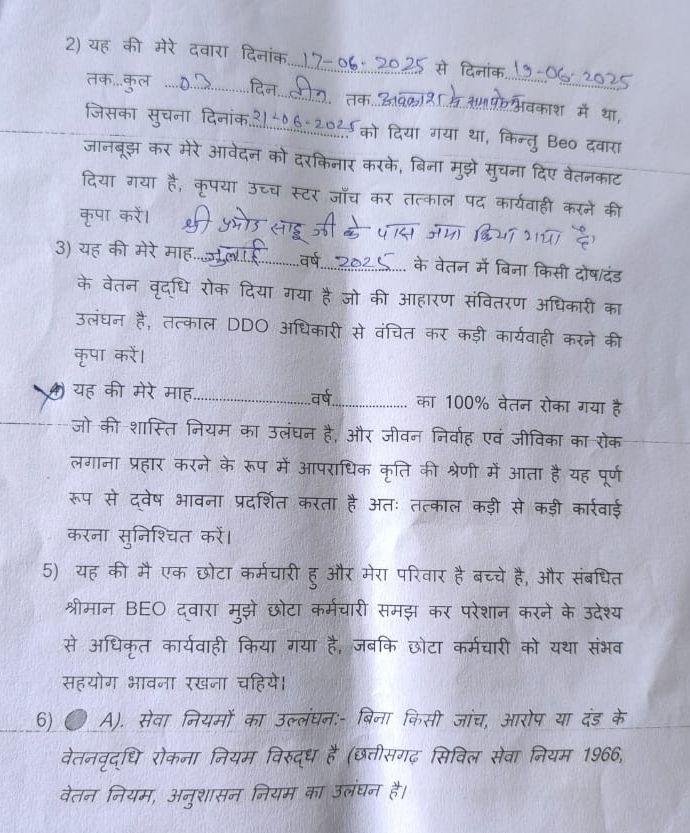 2) यह की मेरे दवारा दिनांक...17-06-2025 से दिनांक 19-06-2025
तक...कुल ....03.........दिन...तीन.. तक...अवकाश के अवकाश में था,
जिसका सुचना दिनांक.21-06-2025 को दिया गया था, किन्तु Beo दवारा
जानबूझ कर मेरे आवेदन को दरकिनार करके, बिना मुझे सुचना दिए वेतनकाट
दिया गया है, कृपया उच्च स्टर जाँच कर तत्काल पद कार्यवाही करने की
कृपा करें। श्री प्रमोद साहू जी के पास जमा किया गया है
3) यह की मेरे माह...जुलाई.........वर्ष...2025.... के वेतन में बिना किसी दोष/दंड
के वेतन वृद्धि रोक दिया गया है जो की आहारण संवितरण अधिकारी का
उलंघन है, तत्काल DDO अधिकारी से वंचित कर कड़ी कार्यवाही करने की
कृपा करें।
4) यह की मेरे माह..............................वर्ष.................... का 100% वेतन रोका गया है
जो की शास्ति नियम का उलंघन है, और जीवन निर्वाह एवं जीविका का रोक
लगाना प्रहार करने के रूप में आपराधिक कृति की श्रेणी में आता है यह पूर्ण
रूप से द्वेष भावना प्रदर्शित करता है अतः तत्काल कड़ी से कड़ी कार्रवाई
करना सुनिश्चित करें।
5) यह की मै एक छोटा कर्मचारी हु और मेरा परिवार है बच्चे है, और संबधित
श्रीमान BEO द्वारा मुझे छोटा कर्मचारी समझ कर परेशान करने के उदेश्य
से अधिकृत कार्यवाही किया गया है, जबकि छोटा कर्मचारी को यथा संभव
सहयोग भावना रखना चहिये।
6) A). सेवा नियमों का उल्लंघन:- बिना किसी जांच, आरोप या दंड के
वेतनवृद्धि रोकना नियम विरुद्ध है (छत्तीसगढ़ सिविल सेवा नियम 1966,
वेतन नियम, अनुशासन नियम का उलंघन है।